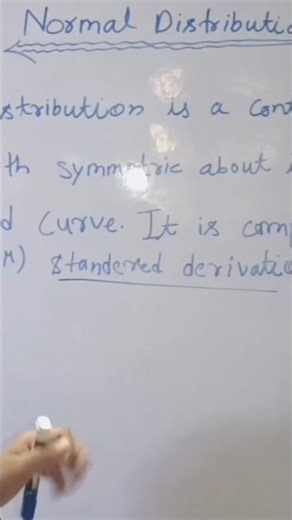 Normal Distributio
stribution is a cont
th symmetric about
d curve. It is comp
M) standered derivatio